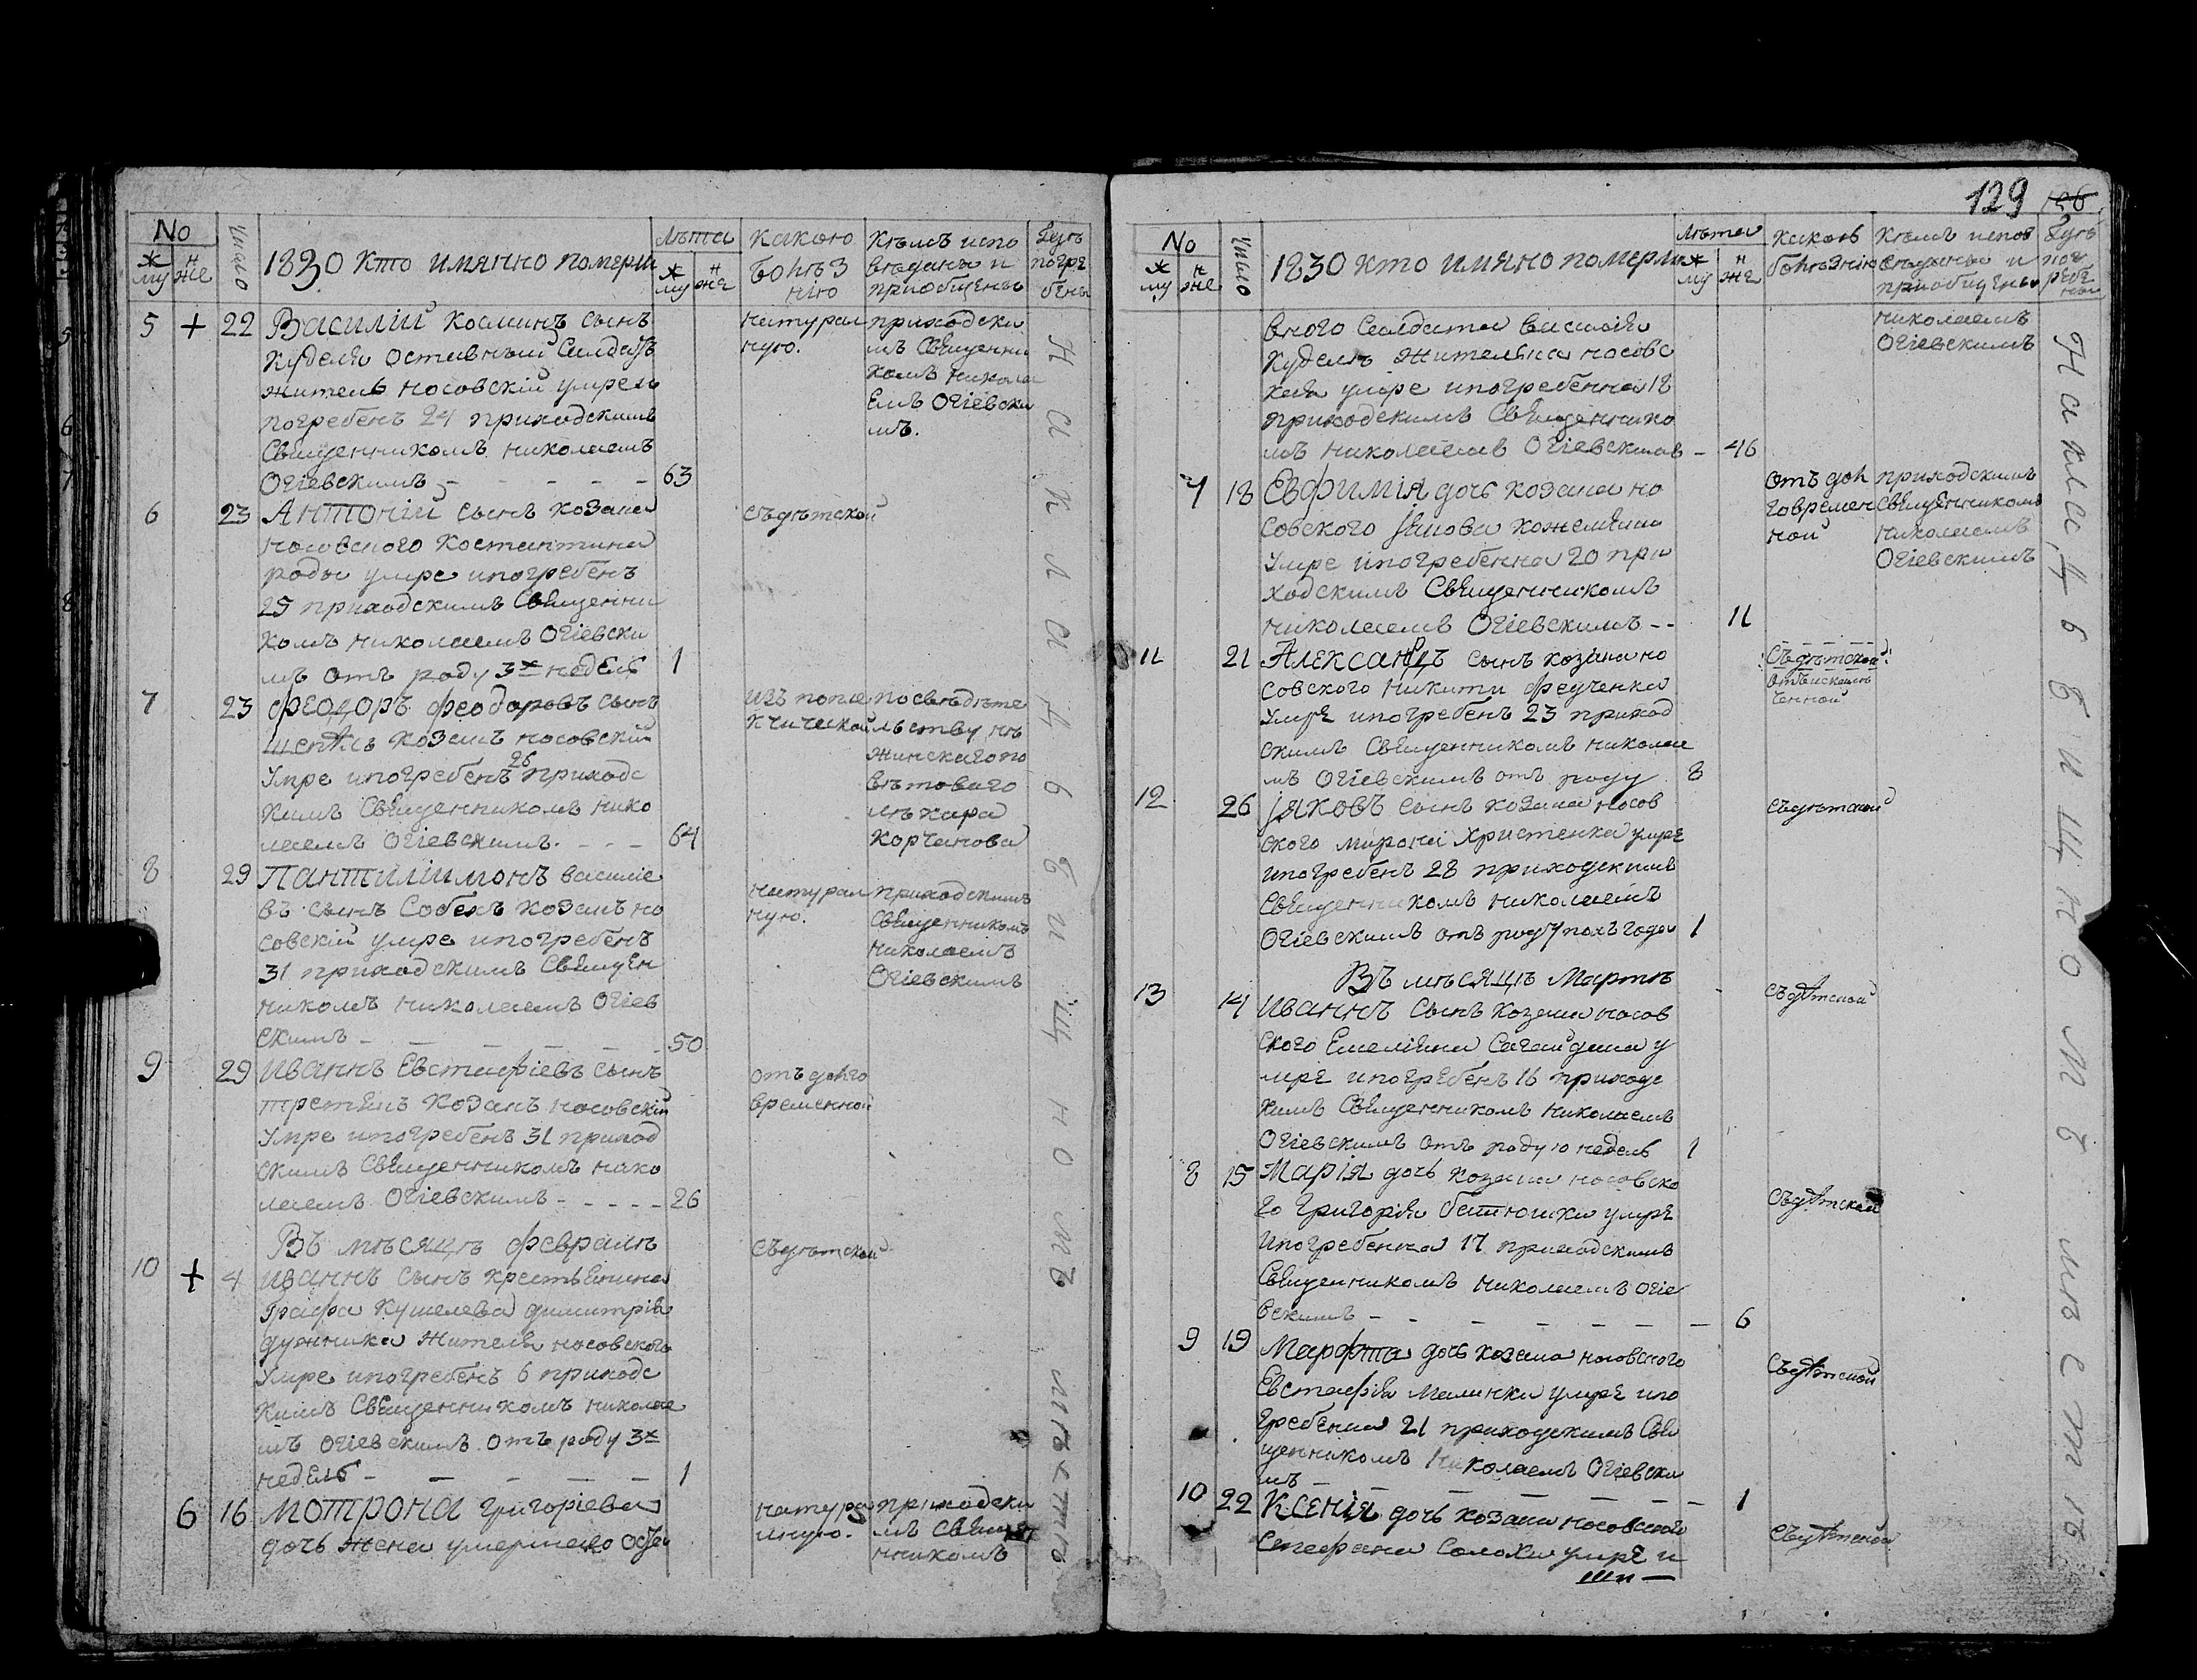 No
Число
1830 Кто имянно померли
Лѣта
какою
болѣз
нію
Кѣмъ испо
вѣданы и
приобщены
Гдѣ
погре
бены
му
же
му
же
5 + 22 Василій Косминъ сынъ
Куделя оставный Салдатъ
житель носовскій умре и
погребенъ 24 приходскимъ
Священникомъ николаемъ
Огіевскимъ - - - - - 63
натурал
ную.
приходски
мъ Священни
комъ никола
Емъ Огіевски
мъ.
6 23 Антоній сынъ козака
носовского Костантина
умре ипогребенъ
25 приходскимъ Священни
комъ николаемъ Огіевски
мъ отъ роду 3х недель 1
Съдѣтской
7 23 Феодоръ феодоровъ сынъ
козакъ носовскій
Умре ипогребенъ 26 приходс
кимъ Священникомъ нико
лаемъ Огіевскимъ. - - - 64
посвѣдѣте
льству нѣ
жинскаго по
вѣтоваго
лѣкара
Корчакова
8 29 Пантилімонъ василіе
въ сынъ Собекъ козакъ но
совскій умре ипогребенъ
31 приходскимъ Священ
никомъ николаемъ Огіев
скимъ - - - - - 50
натурал
ную.
приходскимъ
Священникомъ
николаемъ
Огіевскимъ
9 29 Иваннъ Евстафіевъ сынъ
третякъ козакъ носовскій
Умре ипогребенъ 31 приход
скимъ Священникомъ нико
лаемъ Огіевскимъ - - - - 26
отъ долго
временной
Въ мѣсяцѣ февралѣ
10 + 4 Иваннъ сынъ крестьянина
Графа Кушелева димитрія
дужника жителя носовского
Умре ипогребенъ 6 приходс
кимъ Священникомъ николае
мъ Огіевскимъ отъ роду 3х
недель - - - - - 1
Съдѣтской
6 16 Мотрона григоріева
дочь жена умершаго Отста
натура
лную.
приходски
мъ Свяще
нникомъ
На кладбищномъ мѣстѣ
129
No
Число
1830 Кто имяно померли
Лѣта
какою
болѣзнію
Кѣмъ испов
ѣданы и
приобщены
Гдѣ
пог
ребе
ны
му
же
му
же
вного Салдата василія
Куделѣ жителька носовс
кая умре ипогребенна 18
приходскимъ Священнико
мъ николаемъ Огіевскимъ - 46
николаемъ
Огіевскимъ
7 18 Евфимія дочь козака но
совского
Умре ипогребенна 20 при
ходскимъ Священникомъ
николаемъ Огіевскимъ - - 11
отъ дол
говремен
ной
приходскимъ
Священникомъ
николаемъ
Огіевскимъ
11 21 Александръ сынъ козака но
совского никити федченка
Умре ипогребенъ 23 приход
скимъ Священникомъ николае
мъ Огіевскимъ отъ роду 8
Съдѣтской
12 26 Іяковъ сынъ козака носов
ского мирона Христенка умре
ипогребенъ 28 приходскимъ
Священникомъ николаемъ
Огіевскимъ отъ роду полъ года 1
Съдѣтской
Въ мѣсяцѣ Мартѣ
13 14 Иваннъ сынъ козака носов
ского Емеліяна Сагайдака у
мре ипогребенъ 16 приходс
кимъ Священникомъ николаемъ
Огіевскимъ отъ роду 10 недель 1
Съдѣтской
8 15 Марія дочь козака носовско
го григорія батюшки умре
ипогребенна 17 приходскимъ
Священникомъ николаемъ Огіе
вскимъ - - - - - - - 6
Съдѣтской
9 19 Марфта дочь козака носовского
Евстафія малинки умре ипо
гребенна 21 приходскимъ Свя
щенникомъ николаемъ Огіевски
мъ - - - - - - 1
Съдѣтской
10 22 Ксенія дочь козака носовского
Стефана Солохи умре и
Съдѣтской
На кладбищномъ мѣстѣ